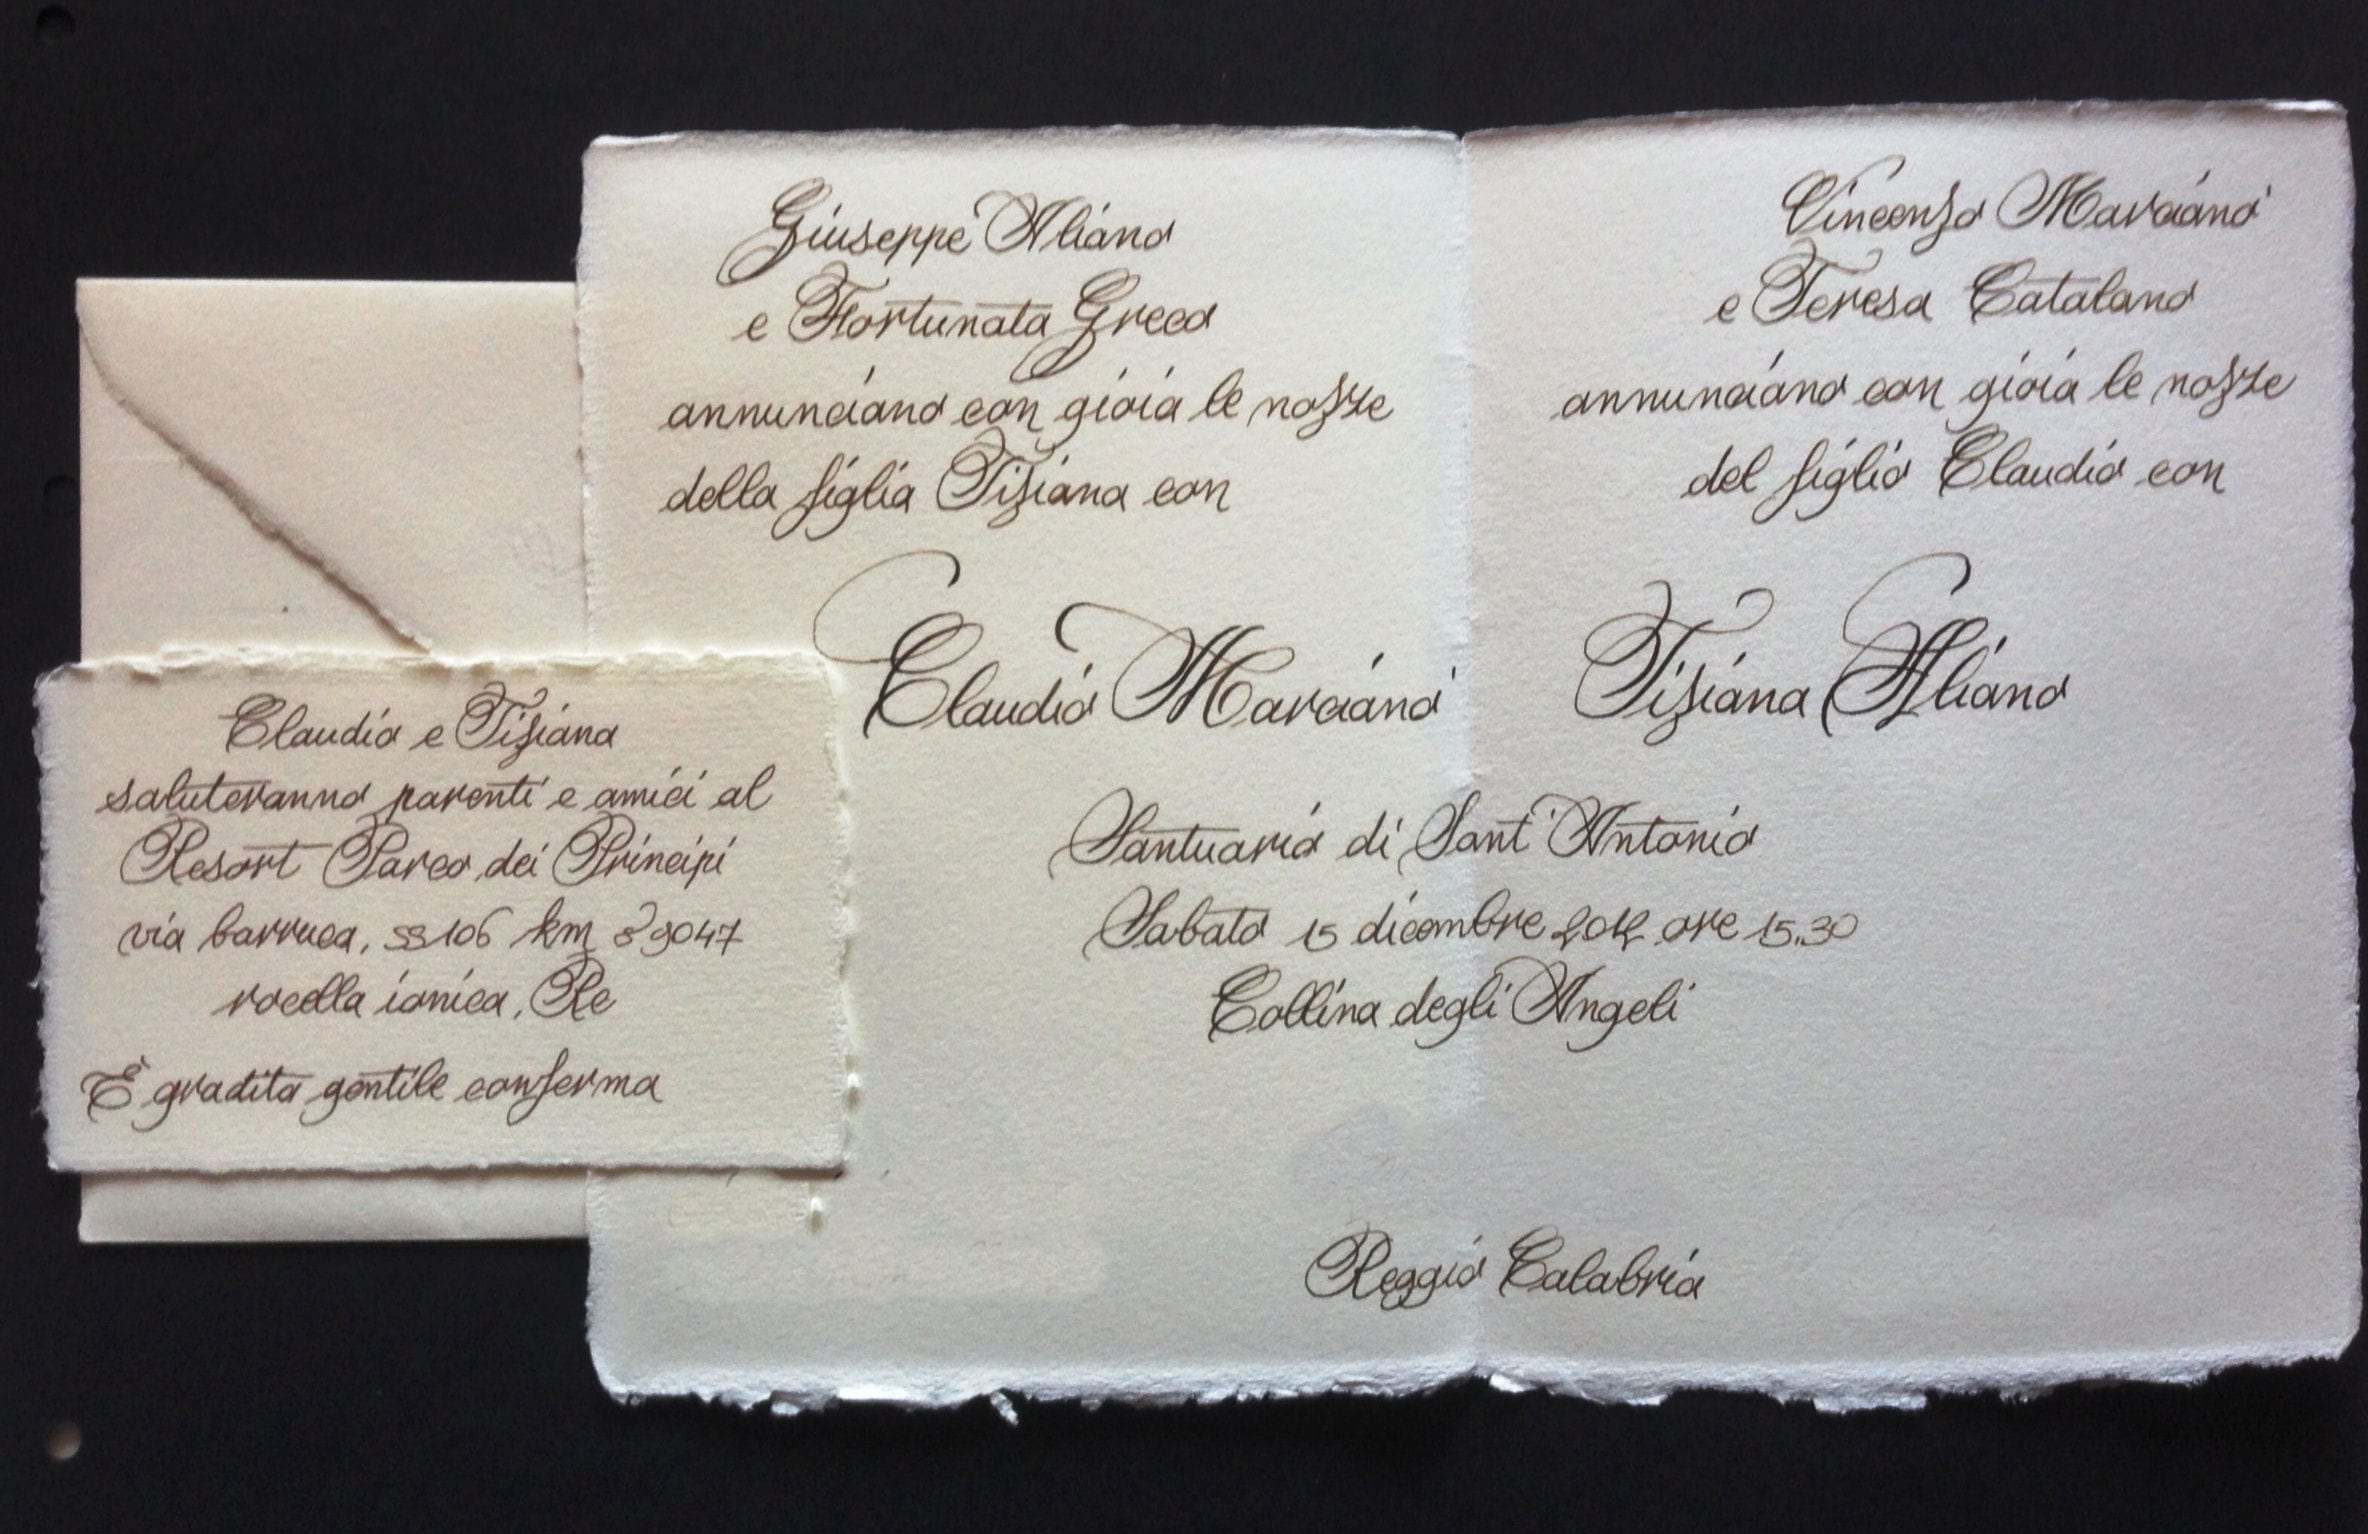 Giuseppe Aliano
e Fortunata Greco
annunciano con gioia le nozze
della figlia Tiziana con
Claudio Marcianò
Vincenzo Marcianò
e Teresa Catalano
annunciano con gioia le nozze
del figlio Claudio con
Tiziana Aliano
Santuario di Sant'Antonio
Sabato 15 dicembre 2012 ore 15.30
Collina degli Angeli
Reggio Calabria
Claudio e Tiziana
saluteranno parenti e amici al
Resort Parco dei Principi
via barruca, ss 106 km 89047
rocella ionica, Rc
È gradita gentile conferma